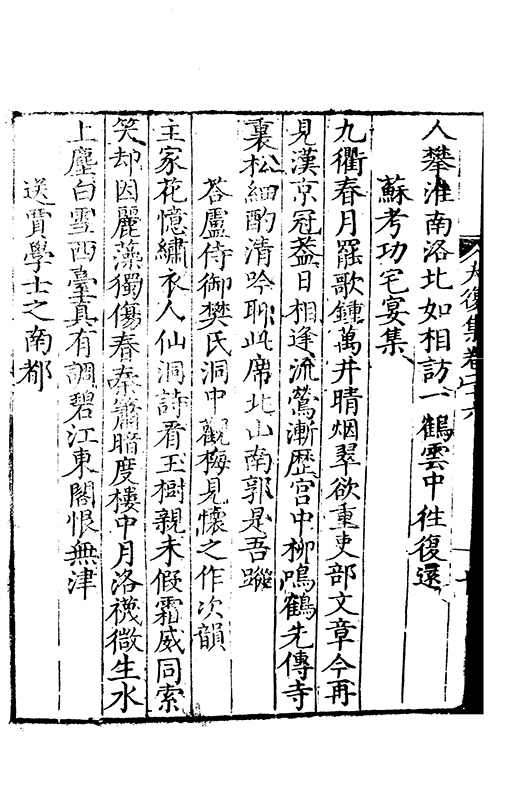 大復集卷二十六
人攀淮南洛北如相訪一鶴雲中往復還
蘇考功宅宴集
九衢春月罷歌鍾萬井晴烟翠欲重吏部文章今再
見漢京冠蓋日相逢流鶯漸歷宫中柳鳴鶴先傳寺
裏松細酌清吟聊此席北山南郭是吾蹤
荅盧侍御樊氏洞中觀梅見懷之作次韻
主家花憶繡衣人仙洞詩看玉樹親未假霜威同索
笑却因麗藻獨傷春秦簫暗度樓中月洛襪微生水
上塵白雪西臺真有調碧江東閣恨無津
送賈學士之南都